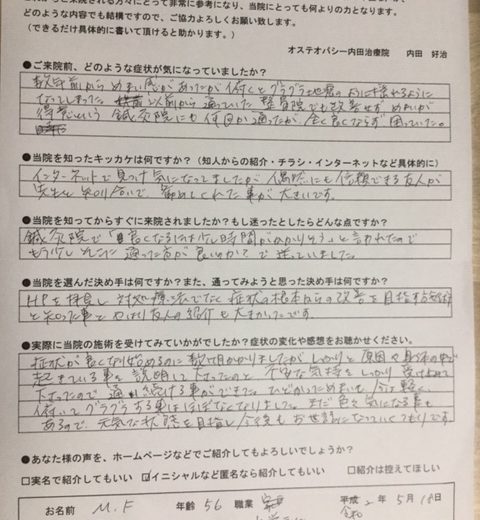 どのような内容でも結構ですので、ご協力よろしくお願い致します。
(できるだけ具体的に書いて頂けると助かります。)
オステオパシー内田治療院　内田　好治
●ご来院前、どのような症状が気になっていましたか？
数年前からめまい感があったが 俯くとグラグラ地震のように揺れるように
なってしまった。 以前から通っていた 整骨院でも改善せず めまいが
得意という 鍼灸院にも何回か通ったが、全く良くならず 困っていた。
●当院を知ったキッカケは何ですか？（知人からの紹介・チラシ・インターネットなど具体的に）
インターネットで見つけ気になってましたが 偶然にも信頼できる友人が
先生と知り合いで、勧めてくれた事が大きいです。
●当院を知ってからすぐに来院されましたか？もし迷ったとしたらどんな点ですか？
鍼灸院で「良くなるには少し時間がかかりそう」と言われたので
もう少しそこに通った方が良いのか？で迷っていました。
●当院を選んだ決め手は何ですか？また、通ってみようと思った決め手は何ですか？
HPを拝見し 対処療法でなく 症状の根本からの改善を目指す
と知った事と やはり友人の紹介も大きかったです。
●実際に当院の施術を受けてみていかがでしたか？症状の変化や感想をお聴かせください。
症状が良くなり始めるのに 数回かかりましたが しっかりと 原因や身体の中で
起きている事を 説明して下さったのと 不安な気持をしっかり受け止めて
下さったので、通い続ける事ができました。ひどかっためまいも 今は軽く、
俯いてグラグラする事はほぼなくなりました。まだ色々気になる事も
あるので、元気な状態を目指し 今後もお世話になっていくつもりです。
●あなた様の声を、ホームページなどでご紹介してもよろしいでしょうか？
□実名で紹介してもいい　☑イニシャルなど匿名なら紹介してもいい　□紹介は控えてほしい
お名前　M.F　年齢 56　職業　平成 2年 5月 18日
令和